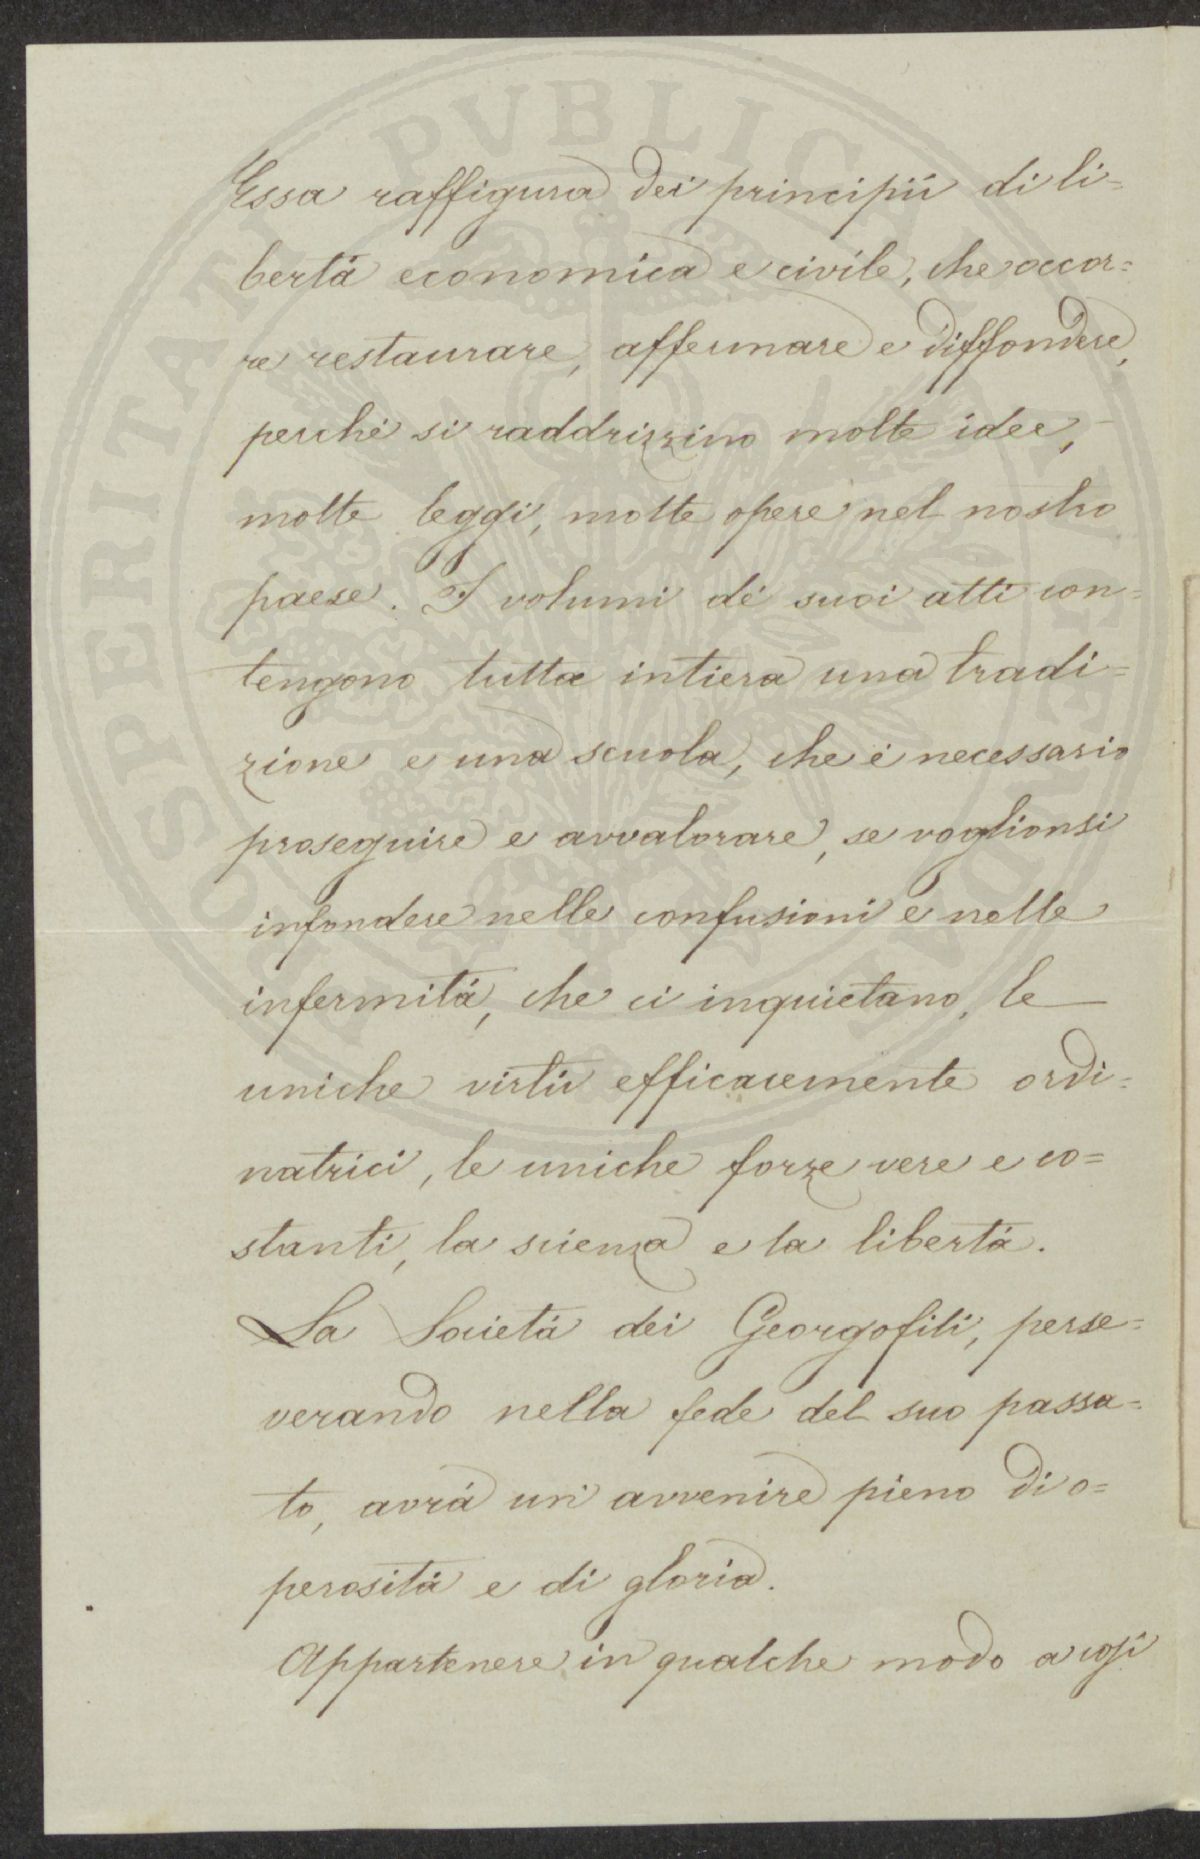 Essa raffigura dei principii di li=
bertà economica e civile, che occor=
re restaurare, affermare e diffondere,
perché si raddrizzino molte idee,
molte leggi, molte opere nel nostro
paese. I volumi de' suoi atti con=
tengono tutta intiera una tradi=
zione e una scuola, che è necessario
proseguire e avvalorare, se voglionsi
infondere nelle confusioni e nelle
infermità, che ci inquietano, le
uniche virtù efficacemente ordi=
natrici, le uniche forze vere e co=
stanti, la scienza e la libertà.
La Società dei Georgofili, perse=
verando nella fede del suo passa=
to, avrà un avvenire pieno di o=
perosità e di gloria.
Appartenere in qualche modo a così
PROSPERITATI PVBLICAE AVGENDAE